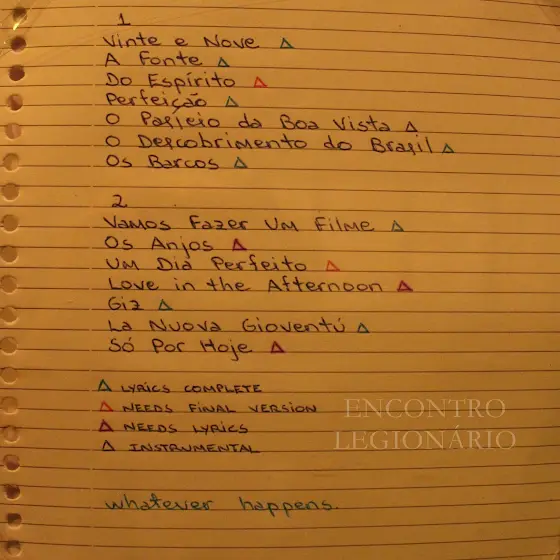 1
Vinte e Nove △
A Fonte △
Do Espírito △
Perfeição △
O Passeio da Boa Vista △
O Descobrimento do Brasil △
Os Barcos △
2
Vamos Fazer Um Filme △
Os Anjos △
Um Dia Perfeito △
Love in the Afternoon △
Giz △
La Nuova Gioventú △
Só Por Hoje △
△ LYRICS COMPLETE
△ NEEDS FINAL VERSION
△ NEEDS LYRICS
△ INSTRUMENTAL
ENCONTRO
LEGIONÁRIO
whatever happens.